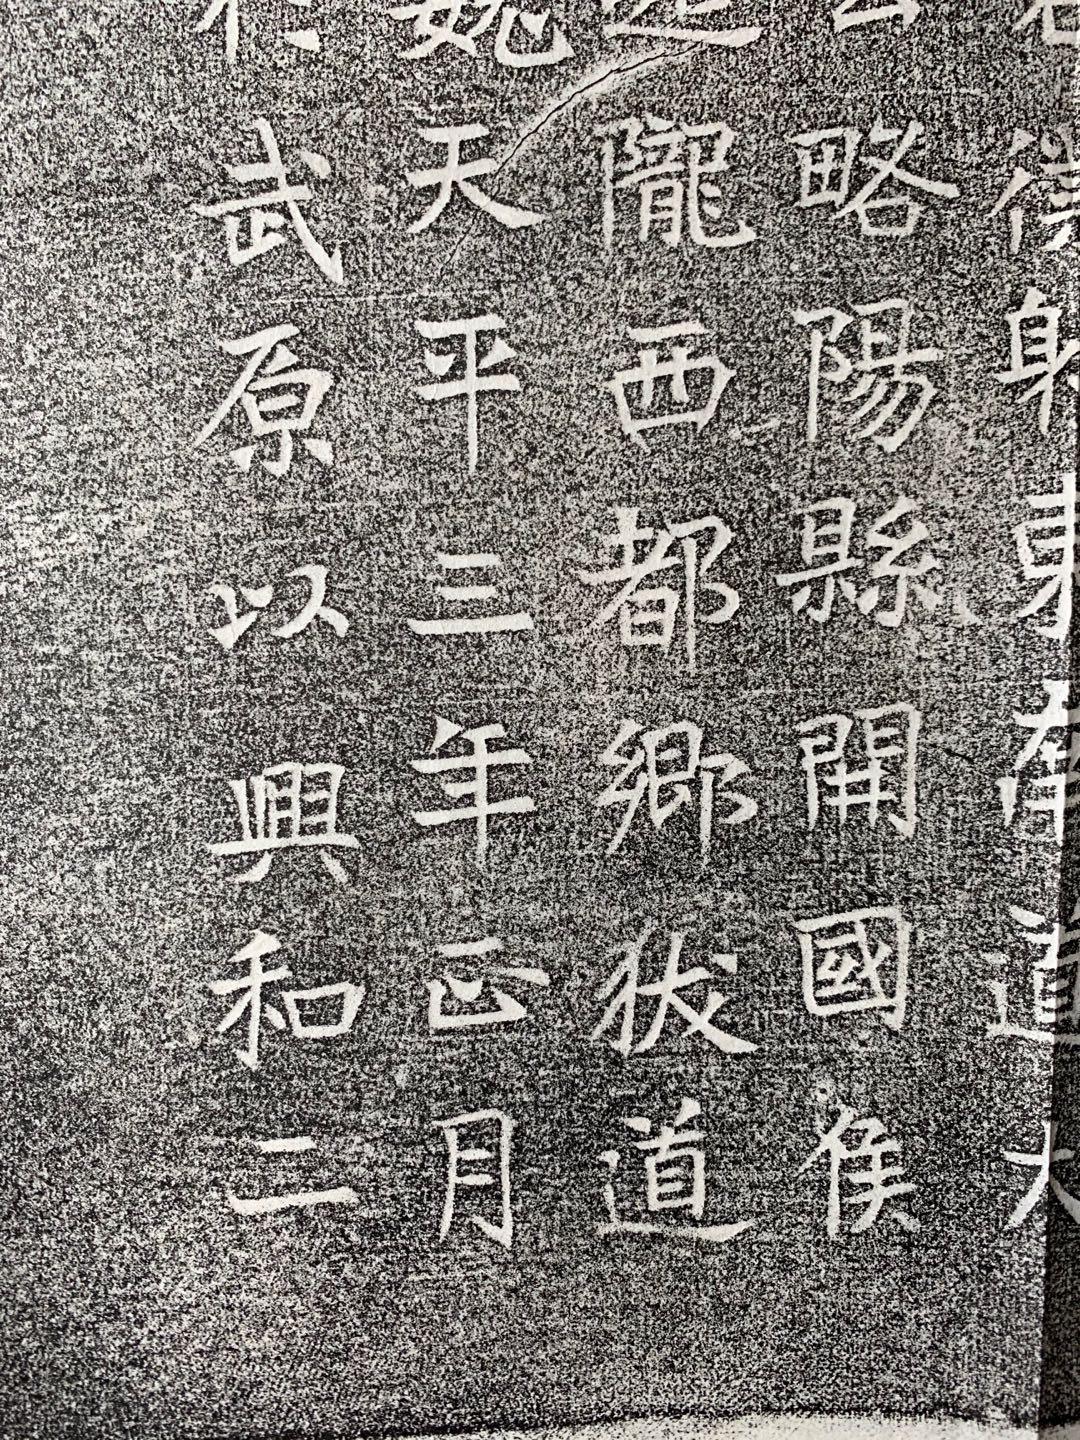 射東南道大
略陽縣開國侯
隴西都鄉狄道
魏天平三年正月
武原以興和二